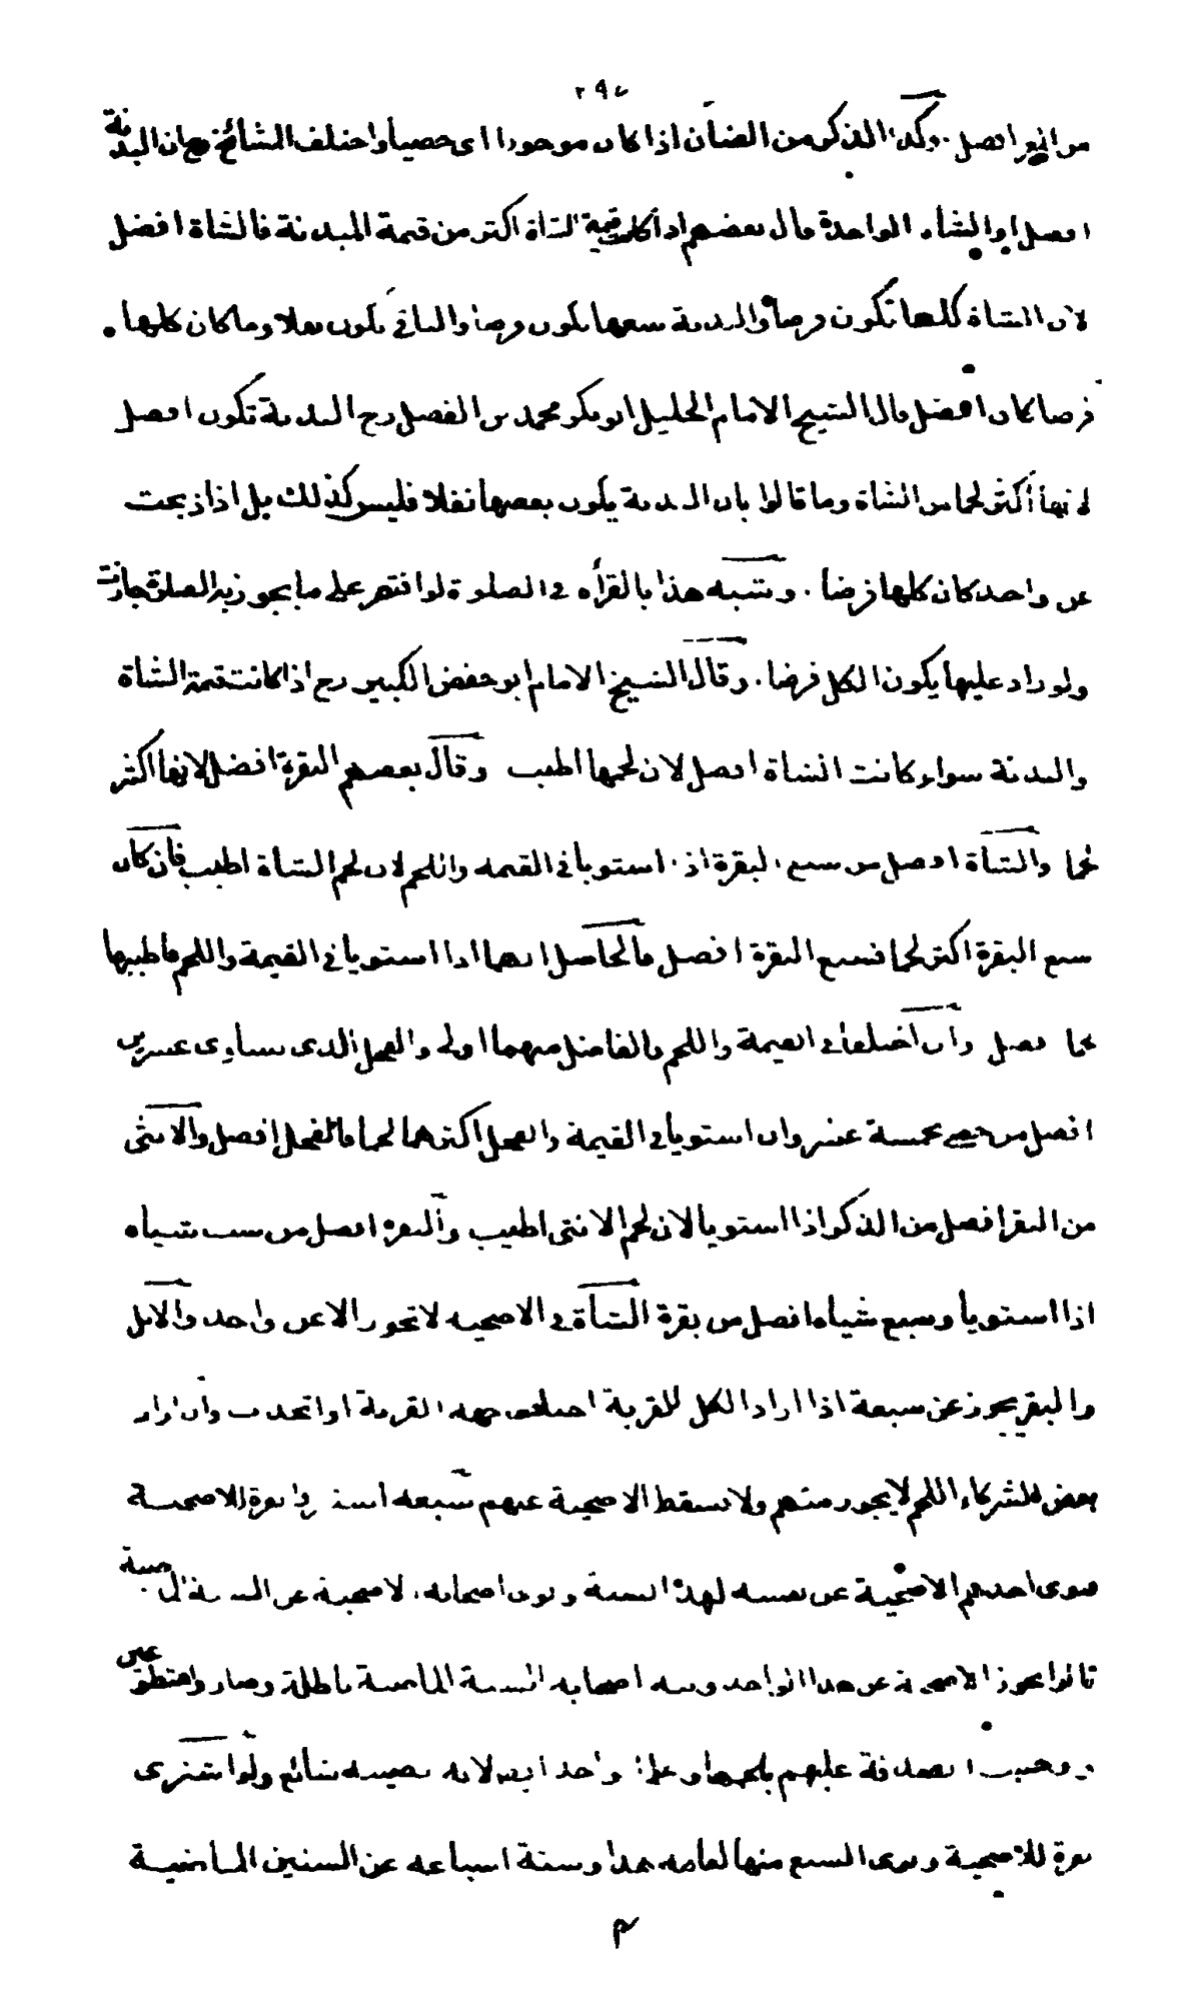 من المعز افضل . وكذا الذكر من الضأن اذا كان موجودا اى خصيا واختلف المشائخ رح ان البدنة
افضل او الشاء الواحدة قال بعضهم اذا كان قيمة الشاة اكثر من قيمة البدنة فالشاة افضل
لان الشاة كلها تكون فرضا والبدنة سبعها يكون فرضا والباقى يكون نفلا وما كان كلها
فرضا كان افضل قال الشيخ الامام الجليل ابو بكر محمد بن الفضل رح البدنة تكون افضل
لانها أكثر لحما من الشاة وما قالوا بان البدنة يكون بعضها نفلا فليس كذلك بل اذا ذبحت
عن واحد كان كلها فرضا . وشبه هذا بالقرأه فى الصلوة لو اقتصر على ما يجوز به الصلوة جازت
ولو زاد عليها يكون الكل فرضا . وقال الشيخ الامام ابو حفض الكبير رح اذا كانت قيمة الشاة
والبدنة سواء كانت الشاة افضل لان لحمها اطيب وقال بعضهم البقرة افضل لانها اكثر
لحما والشاة افضل من سبع البقرة اذا استويا فى القيمه واللحم لان لحم الشاة اطيب فان كان
سبع البقرة اكثر لحما فسبع البقرة افضل فالحاصل انهما اذا استويا فى القيمة واللحم فاطيبها
لحما افضل وان اختلفا فى القيمة واللحم فالفاضل منهما اولى والفحل الذى يساوى عشرين
افضل من خصى بخمسة عشر وان استويا فى القيمة والفحل اكثرهما لحما فالفحل افضل والانثى
من البقر افضل من الذكر اذا استويا لان لحم الانثى اطيب والبقرة افضل من ست شياه
اذا استويا وسبع شياه افضل من بقرة الشاة فى الاضحيه لا تجوز الا عن واحد والابل
والبقر يجوز عن سبعة اذا اراد الكل للقربة اختلفت جهة القربة او اتحدت وان اراد
بعض الشركاء اللحم لا يجوز منهم ولا يسقط الاضحية عنهم سبعه اشتروا بقرة للاضحية
فنوى احدهم الاضحية عن نفسه لهذه السنة ونوى اصحابه الاضحية عن السنة الماضية
قالوا يجوز الاضحية عن هذا الواحد ونية اصحابه السنة الماضية باطلة وصار وا متطوعين
ووجبت الصدقة عليهم بلحمها وعلى الواحد ايضا لانه نصيبه شائع ولو اشترى
بقرة للاضحية ونوى السبع منها لعامه هذا وستة اسباعه عن السنين الماضية